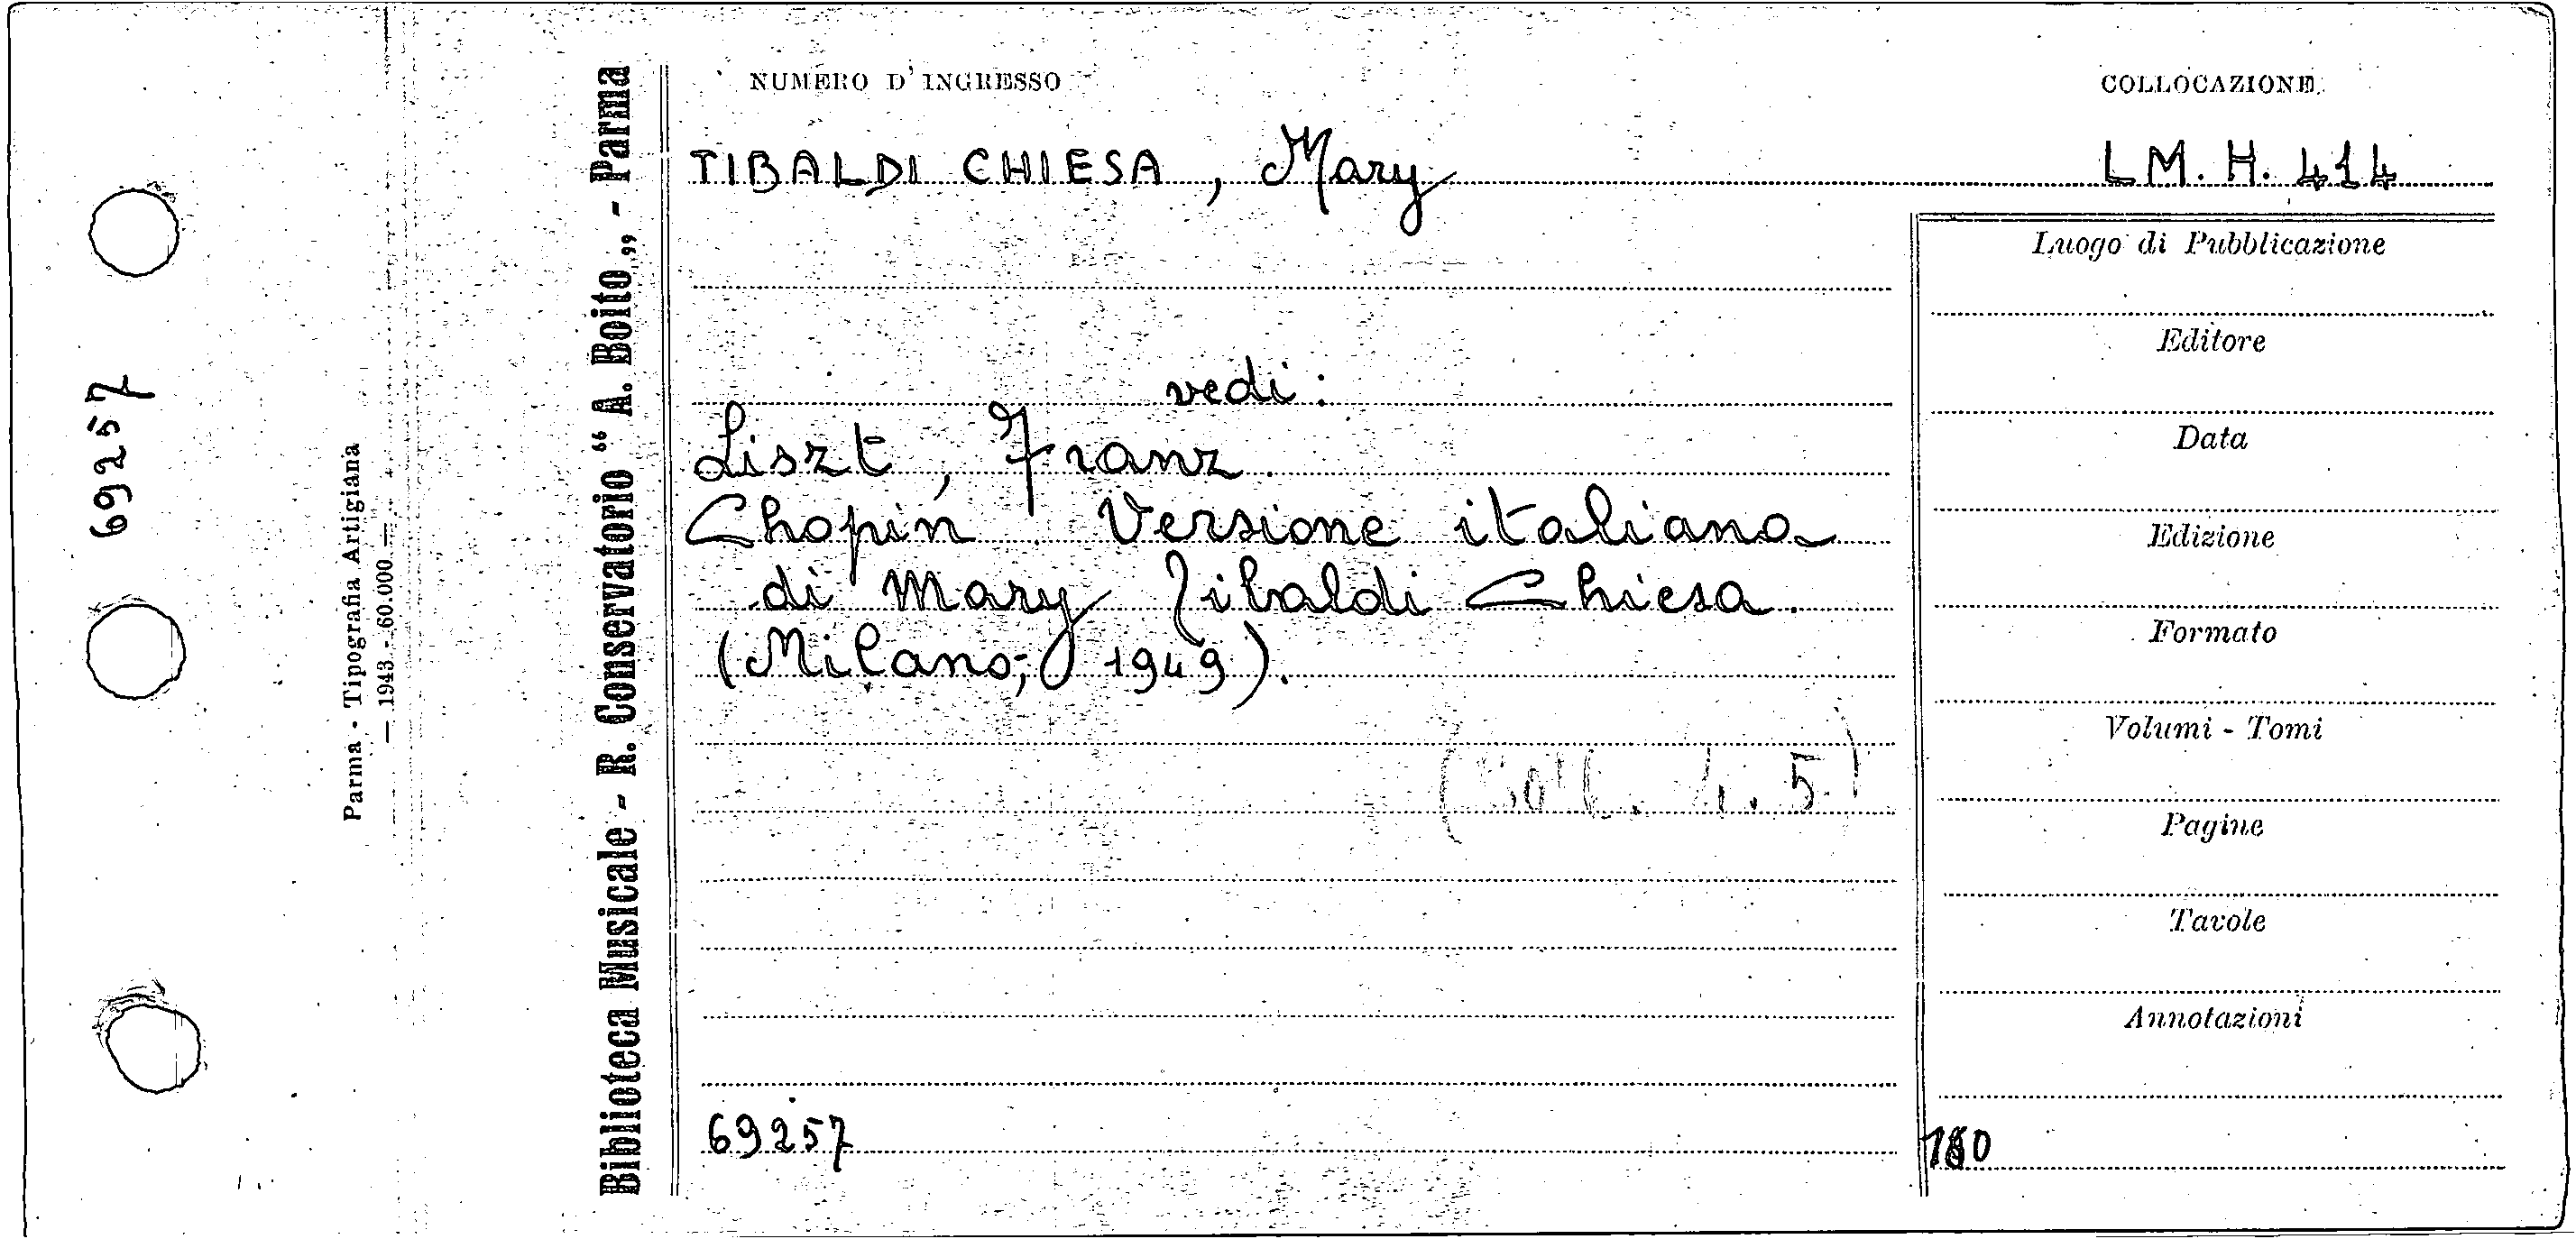 NUMERO D'INGRESSO
COLLOCAZIONE
TIBALDI CHIESA, Mary
LM. H. 414
vedi:
Liszt, Franz.
Chopin. Versione italiana
di Mary Tibaldi Chiesa.
(Milano, 1949).
5)
69257
Luogo di Pubblicazione
Editore
Data
Edizione
Formato
Volumi - Tomi
Pagine
Tavole
Annotazioni
Biblioteca Musicale - R. Conservatorio “ A. Boito „ - Parma
Parma - Tipografia Artigiana
— 1943 - 60.000 —
69257